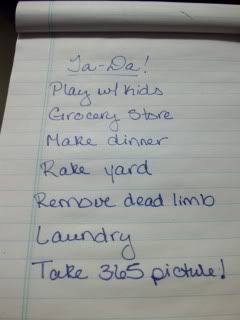 Ta-Da!
Play w/ Kids
Grocery Store
Make dinner
Rake yard
Remove dead limb
Laundry
Take 365 picture!